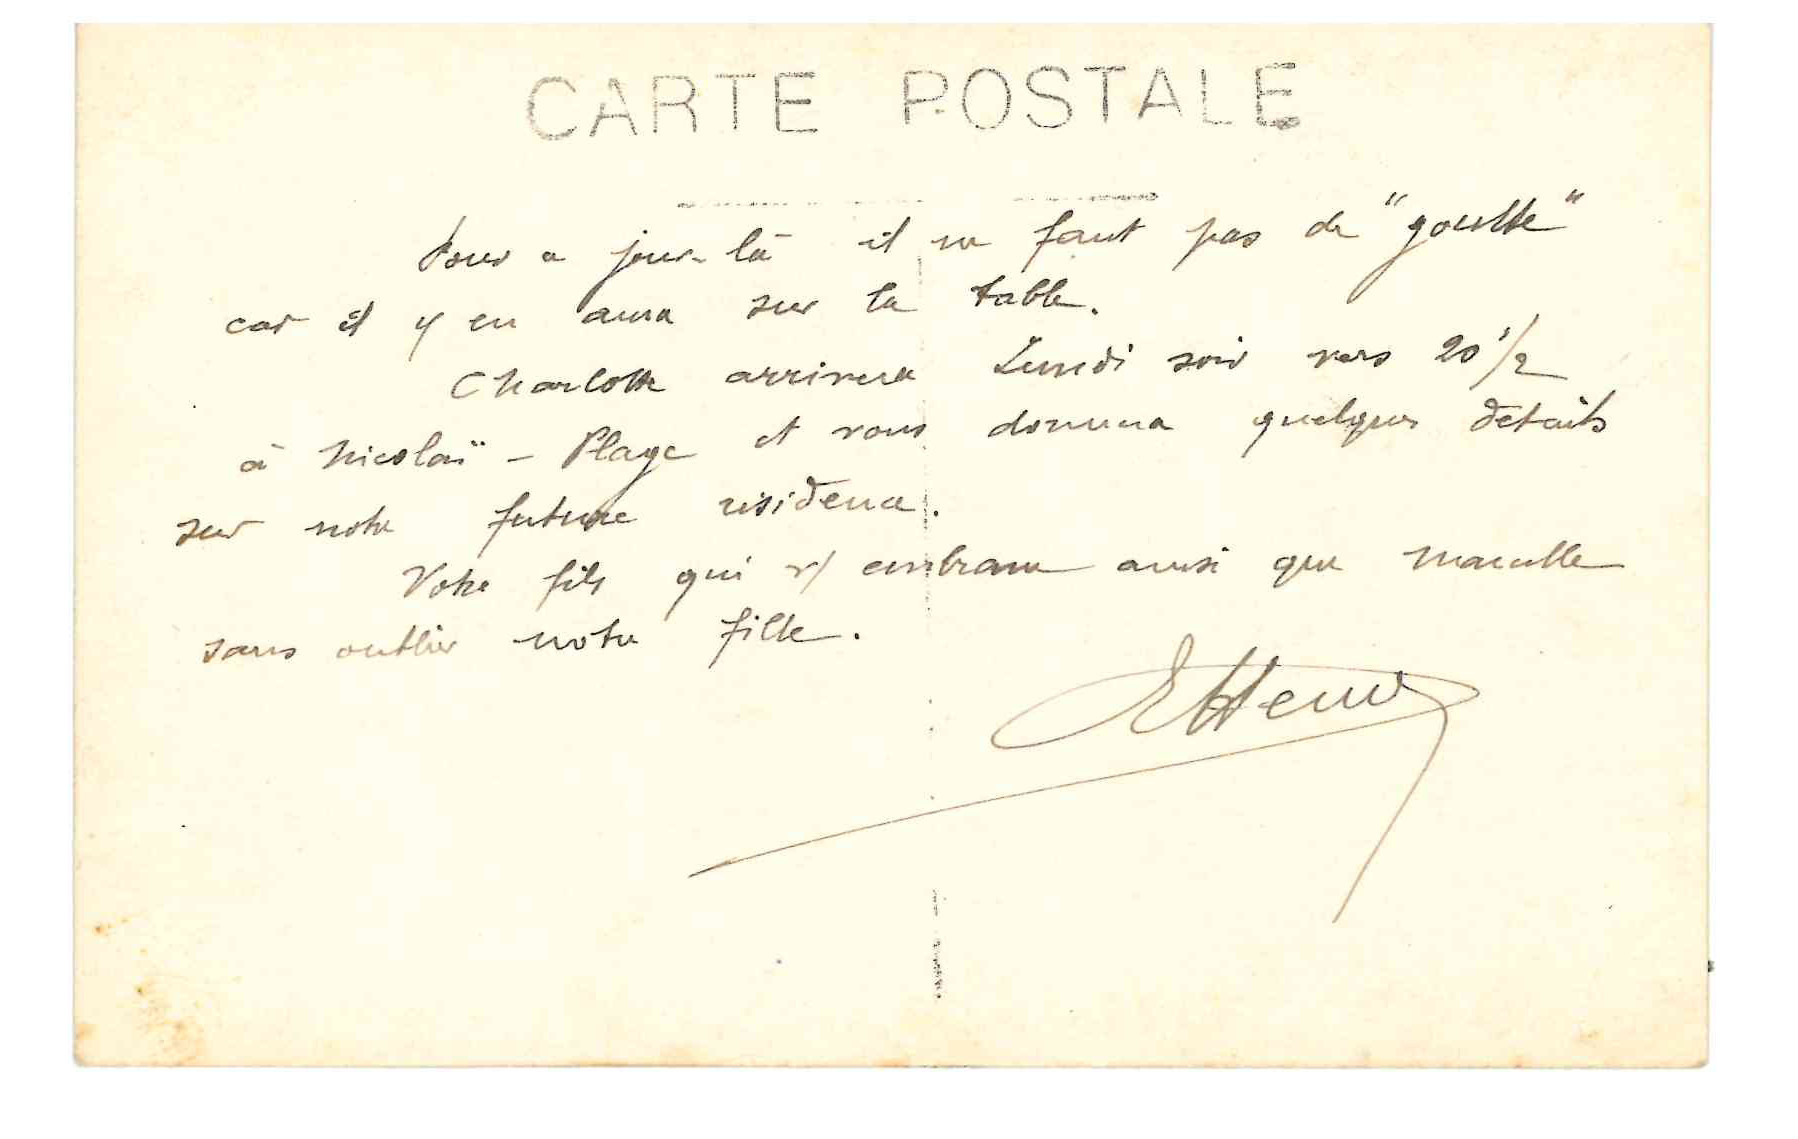 CARTE POSTALE
Pour ce jour-là il ne faut pas de "goutte"
car il y en aura sur la table.
Charlotte arrivera Lundi soir vers 20 1/2
à Nicolaï - Plage et vous donnera quelques détails
sur notre future résidence.
Votre fils qui v/ embrasse ainsi que Marcelle
sans oublier notre fille.